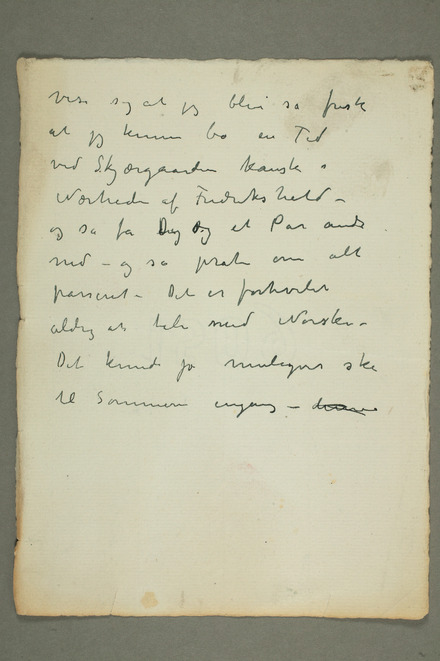 vise sig at jeg blir så frisk
at jeg kunne bo en Tid
ved Skjærgaarden kanske i
Nærheden af Fredrikshald –
og så få Dig og et Par andre
med – og så prate om alt
passeret – Det er forhvilet
aldrig at tale med Norske –
Det kunde jo muligens ske
til Sommeren engang –